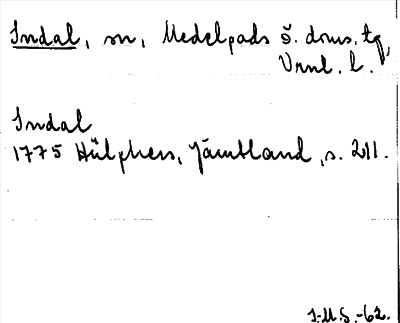 Indal, sn, Medelpads ö. doms. tg,
Vrnl. l.
Indal
1775 Hülphers, Jämtland, s. 211.
I.M.S.-62.